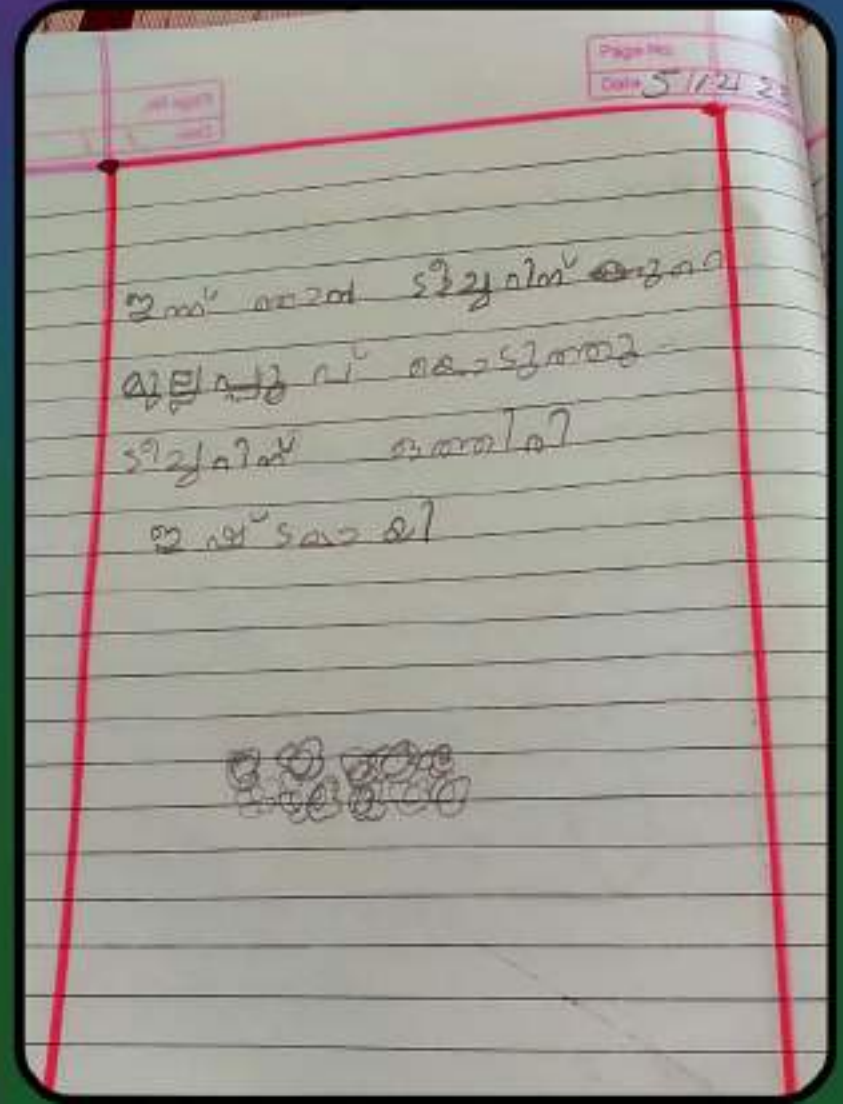 Page No.
Date 5/12/23
ഇന്ന് ഞാൻ ടീച്ചറിന്
മുല്ലപ്പൂവ് കൊടുത്തു
ടീച്ചറിന് ഒത്തിരി
ഇഷ്ടമായി